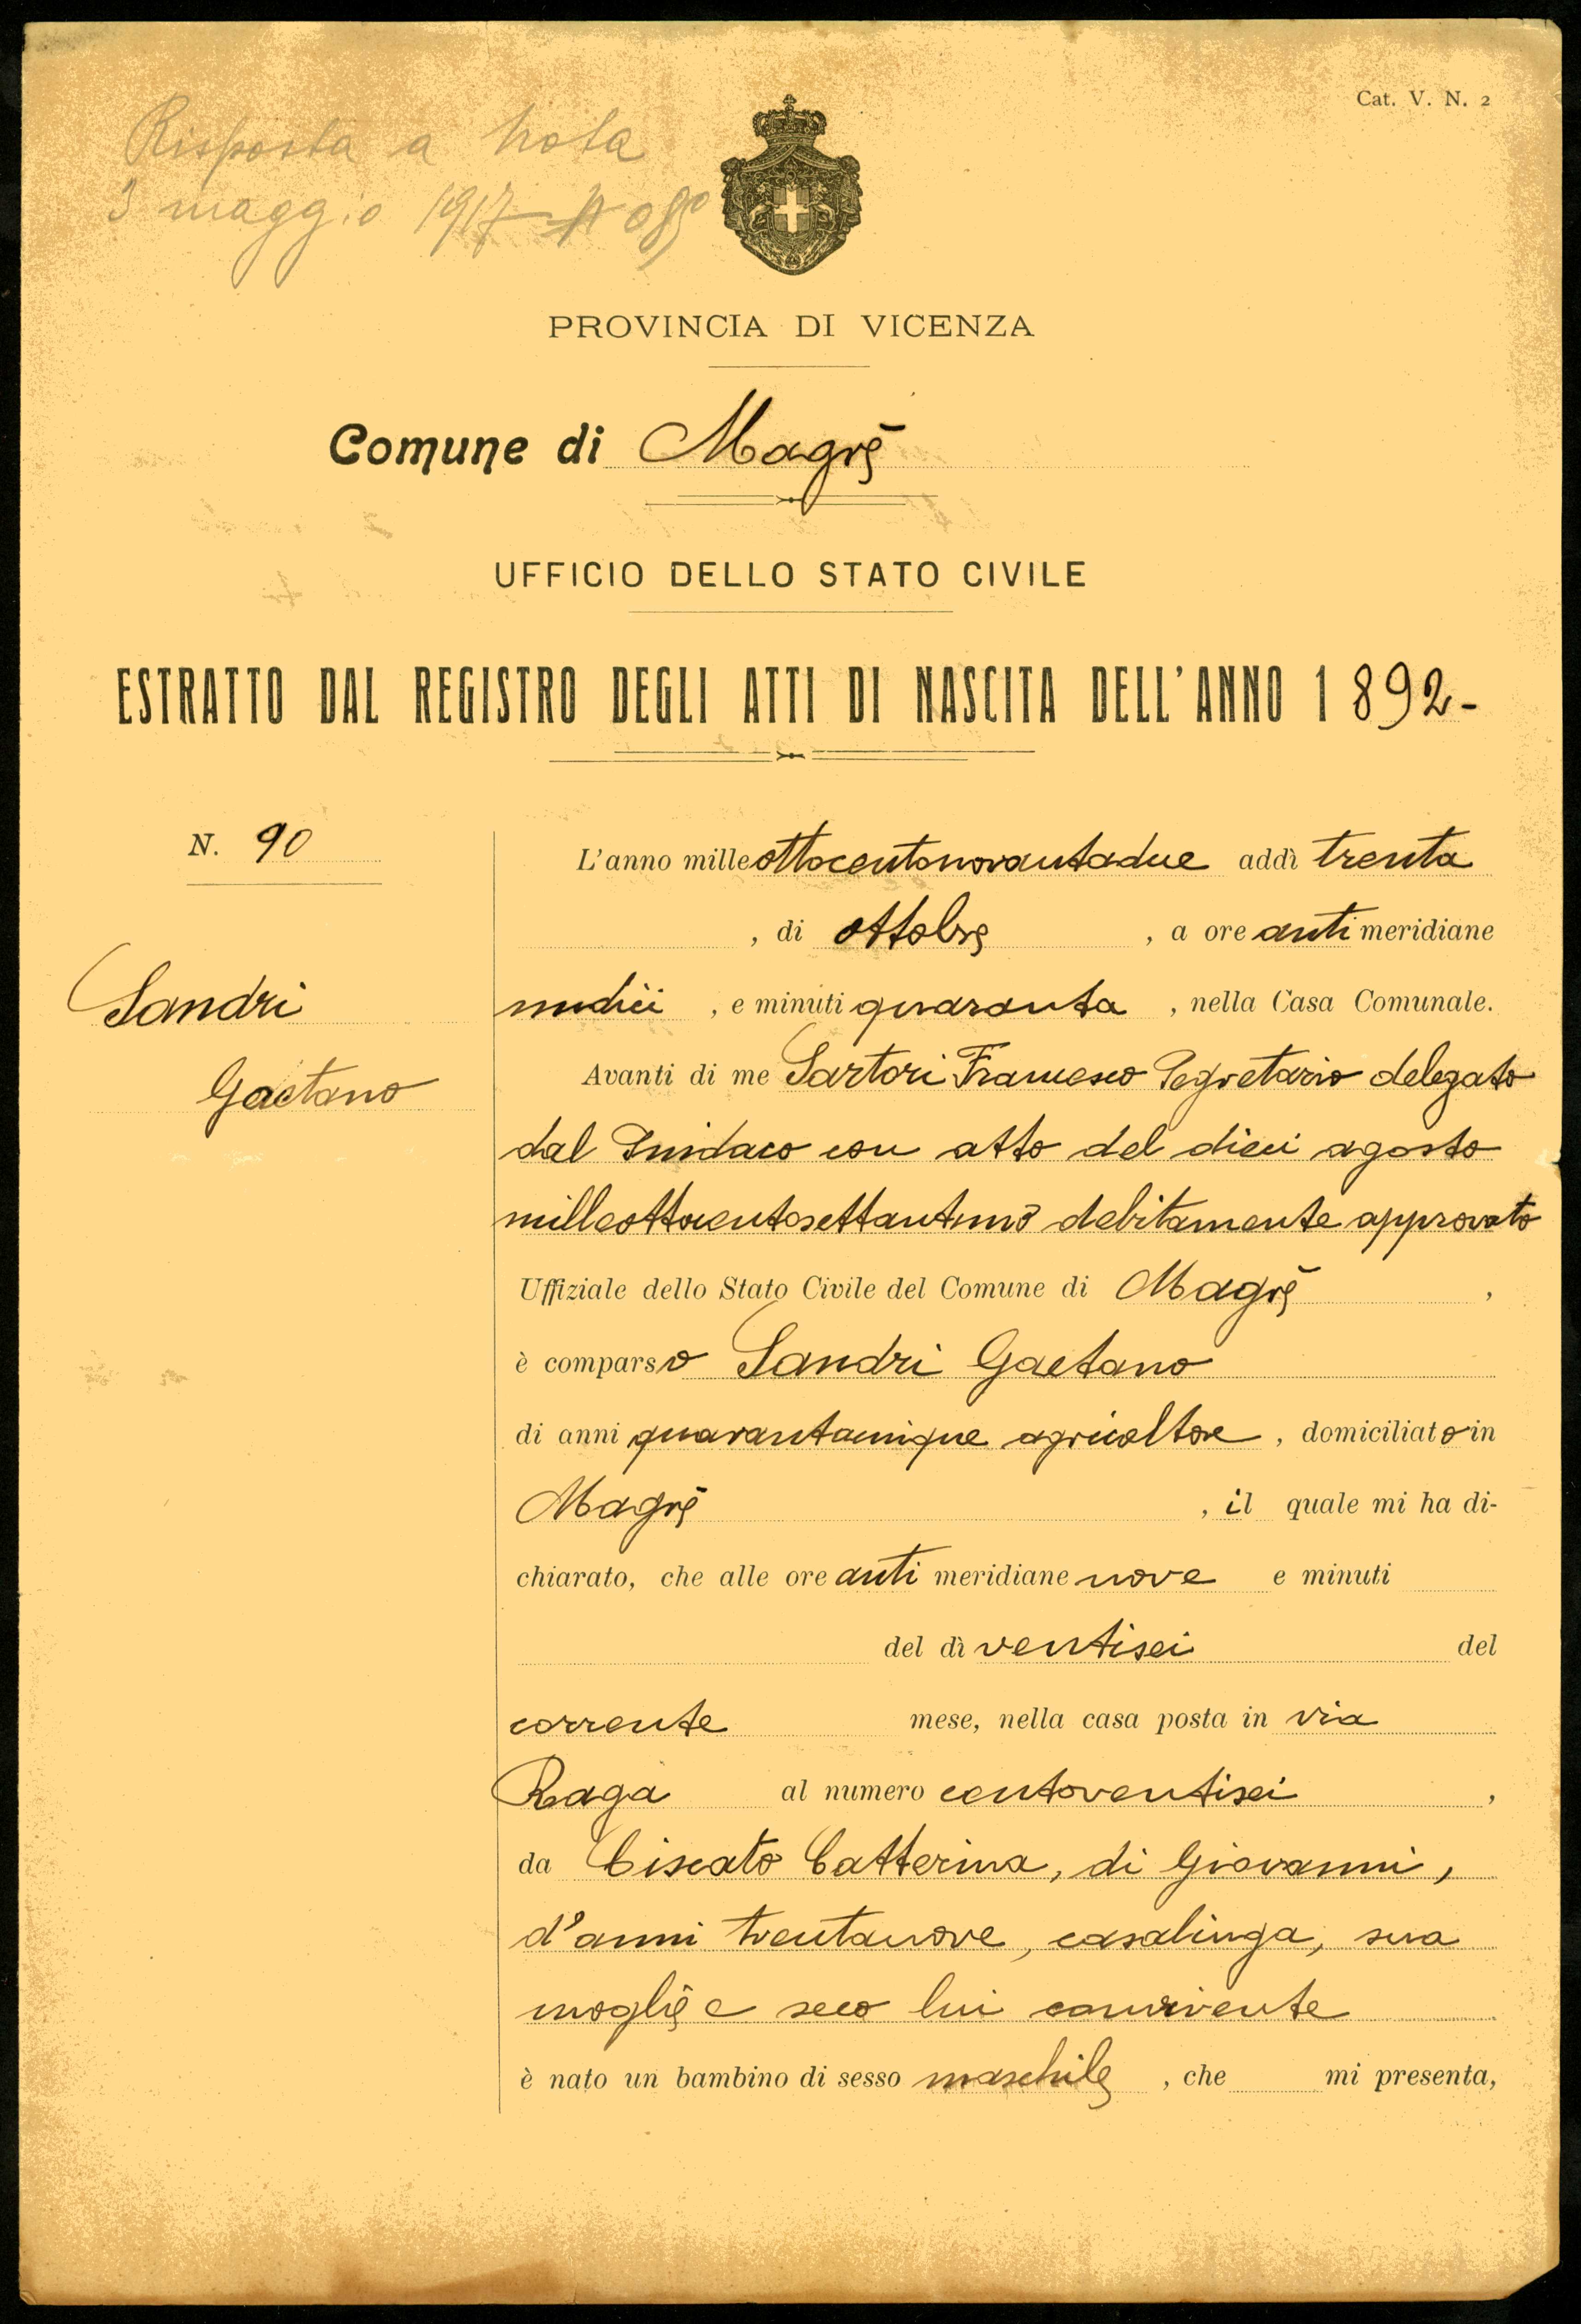 Cat. V. N. 2
Risposta a nota
3 maggio 1917
PROVINCIA DI VICENZA
Comune di Magrè
UFFICIO DELLO STATO CIVILE
ESTRATTO DAL REGISTRO DEGLI ATTI DI NASCITA DELL'ANNO 1892-
N. 90
Sandri
Gaetano
L'anno milleottocentonovantadue addì trenta
, di ottobre , a ore antimeridiane
undici , e minuti quaranta , nella Casa Comunale.
Avanti di me Sartori Francesco Segretario delegato
dal Sindaco con atto del dieci agosto
milleottocentosettantuno debitamente approvato
Uffiziale dello Stato Civile del Comune di Magrè ,
è comparso Sandri Gaetano
di anni quarantacinque agricoltore , domiciliato in
Magrè , il quale mi ha di-
chiarato, che alle ore antimeridiane nove e minuti
del dì ventisei del
corrente mese, nella casa posta in via
Raga al numero centoventisei ,
da Ciscato Catterina, di Giovanni,
d'anni trentanove, casalinga, sua
moglie e seco lui convivente
è nato un bambino di sesso maschile , che mi presenta,